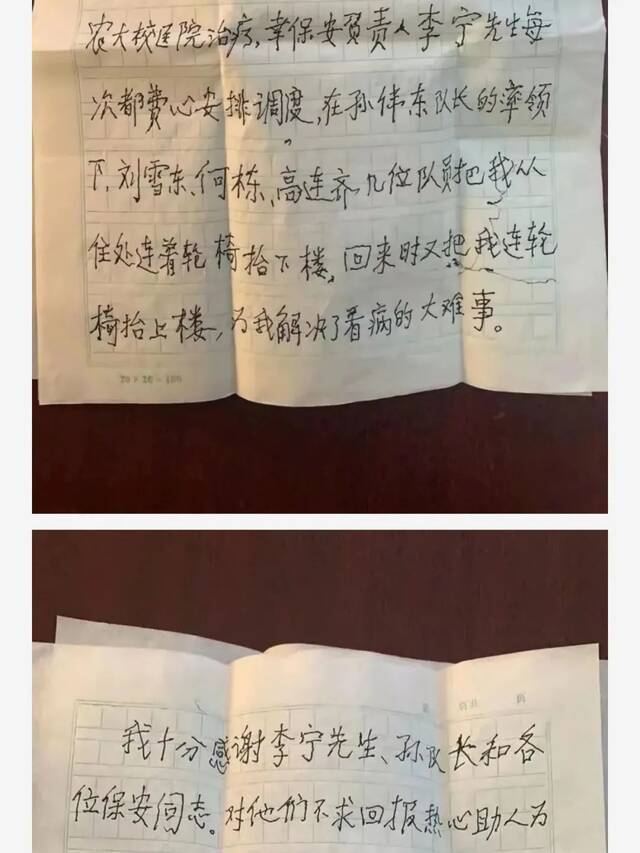 农大校医院治疗,幸保安负责人李宁先生每
次都費心安排调度,在孙伟东队长的率领
下,刘雪东、何栋、高连齐几位队员把我从
住处连着轮椅抬下楼,回来时又把我连轮
椅抬上楼,为我解决了看病的大难事。
20×20=400
我十分感谢李宁先生、孙队长和各
位保安同志。对他们不求回报热心助人为